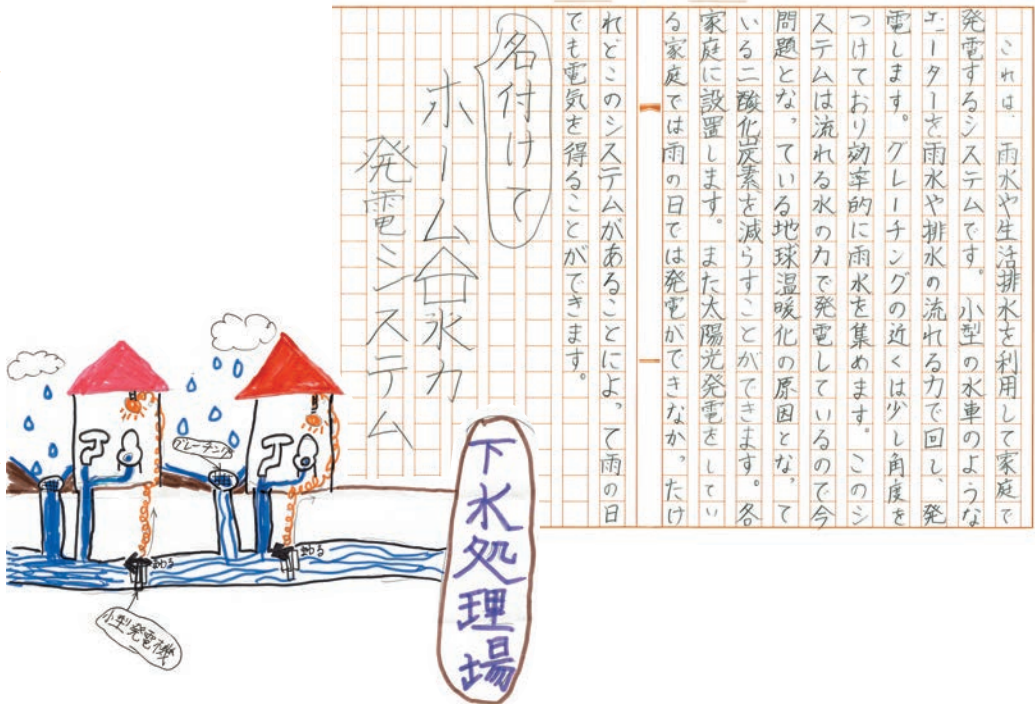 これは、雨水や生活排水を利用して家庭で
発電するシステムです。小型の水車のような
モーターを雨水や排水の流れる力で回し、発
電します。グレーチングの近くは少し角度を
つけており効率的に雨水を集めます。このシ
ステムは流れる水の力で発電しているので今
問題となっている地球温暖化の原因となって
いる二酸化炭素を減らすことができます。各
家庭に設置します。また太陽光発電をしてい
る家庭では雨の日では発電ができなかったけ
れどこのシステムがあることによって雨の日
でも電気を得ることができます。
名付けて
ホーム谷水力
発電システム
グレーチング
動る
動る
小型発電機
下水処理場